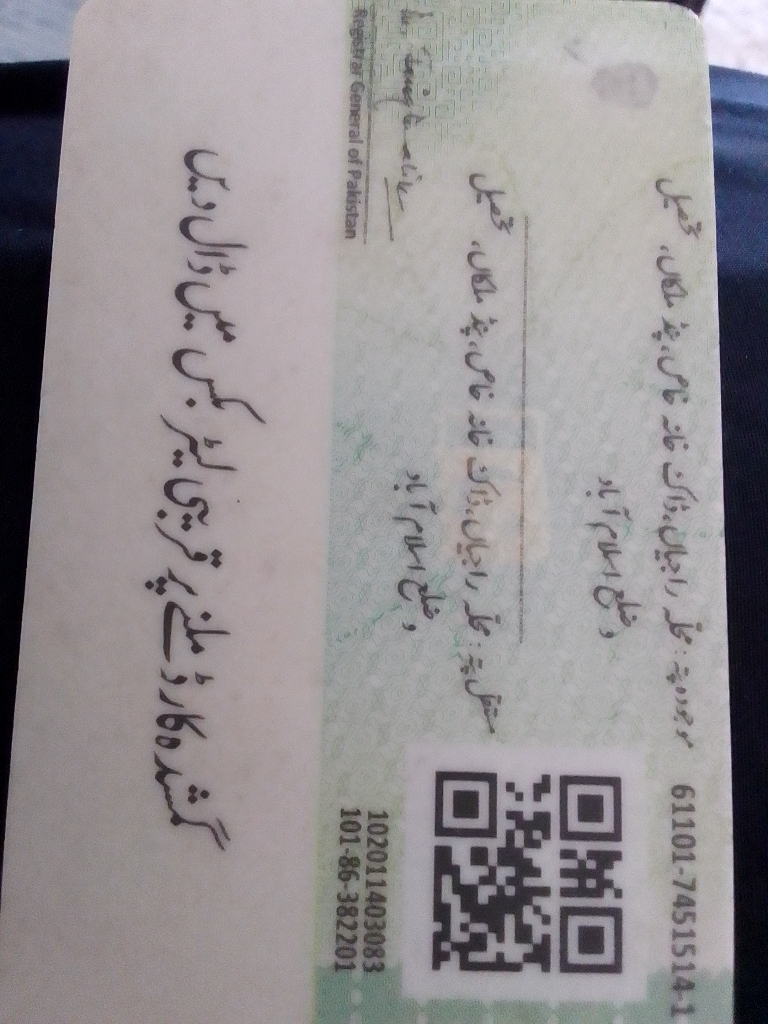 61101-7451514-1
موجودہ پتہ: محلہ راجیاں، ڈاک خانہ خاص، پنڈ ملکاں، تحصیل
و ضلع اسلام آباد
مستقل پتہ: محلہ راجیاں، ڈاک خانہ خاص، پنڈ ملکاں، تحصیل
و ضلع اسلام آباد
102011403083
101-86-382201
Registrar General of Pakistan
گمشدہ کارڈ ملنے پر قریبی لیٹر بکس میں ڈال دیں